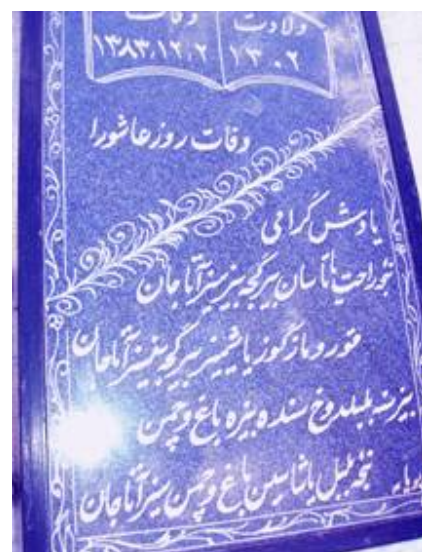 ولادت وفات
۱۳۰۲ ۱۳۸۳،۱۲،۲
وفات روز عاشورا
یادش گرامی
نجوراحت یاتاسان بیرگجه بیزسیز آتاجان
قوروماز گوز یاشیمیز بیرگجه آتاجان
بیز سنه بلبلدوخ سنده بیزه باغ و چمن
نجه بلبل یاشاسین باغ و چمن سیز آتاجان